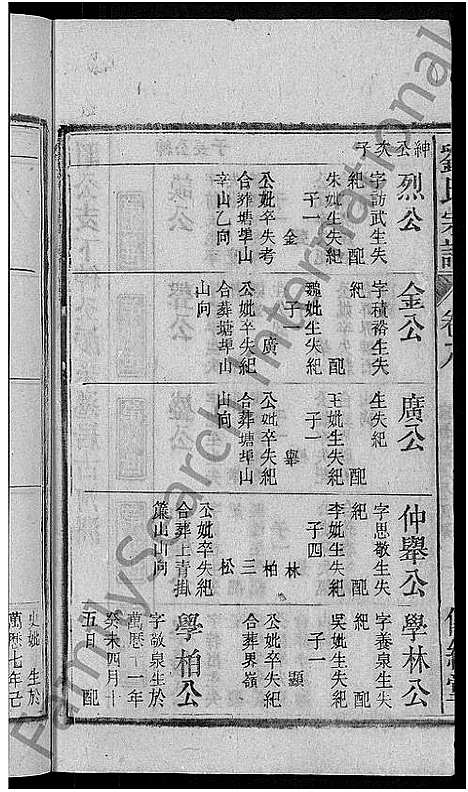 劉氏宗譜
卷八
紳公次子
烈公
字訪武生失
紀 配
朱妣生失紀
子一
金
公妣卒失考
合葬塘埠山
辛山乙向
金公
字積裕生失
紀 配
魏妣生失紀
子一
廣
公妣卒失紀
合葬塘埠山
山向
廣公
生失紀
配
王妣生失紀
子一
舉
公妣卒失紀
合葬塘埠山
山向
仲舉公
字思敬生失
紀 配
李妣生失紀
子四
林
柏
三
松
公妣卒失紀
合葬上青掛
山山向
學林公
字養泉生失
紀 配
吳妣生失紀
子一
顯
公妣卒失紀
合葬界嶺
學柏公
字敬泉生於
萬曆十一年
癸未四月十
五日 配
史妣生於
萬曆七年己
FamilySearch International